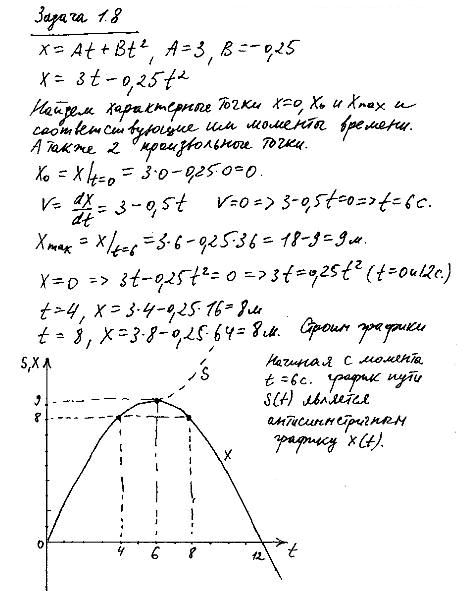 Задача 1.8
x = At + Bt², A = 3, B = -0,25
x = 3t - 0,25t²
Найдем характерные точки x=0, x₀ и xmax и
соответствующие им моменты времени.
А также 2 произвольные точки.
x₀ = x/t=0 = 3·0 - 0,25·0 = 0.
V = dx/dt = 3 - 0,5t V=0 => 3-0,5t=0 => t=6 с.
Xmax = x/t=6 = 3·6 - 0,25·36 = 18-9 = 9 м.
x=0 => 3t - 0,25t² = 0 => 3t = 0,25t² (t=0 и 12 с.)
t=4, x = 3·4 - 0,25·16 = 8 м
t = 8, x = 3·8 - 0,25·64 = 8 м. Строим графики
S,X
S
Начиная с момента
t = 6 с. график пути
S(t) является
антисимметричным
графику x(t).
9
8
x
0
4
6
8
12
t